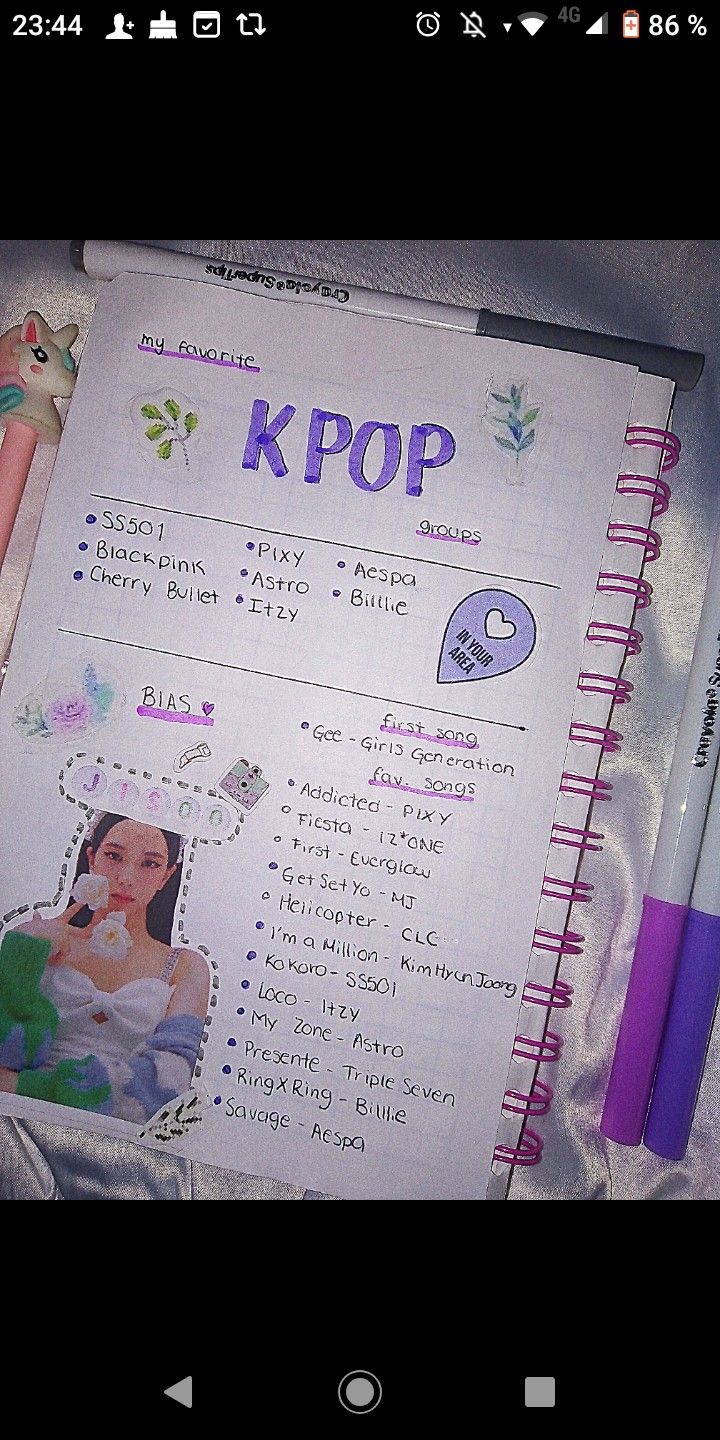 23:44
4G
86 %
Crayola® SuperTips
my favorite
KPOP
groups
• SS501
• Blackpink
• Cherry Bullet
• Pixy
• Astro
• Itzy
• Aespa
• Billlie
IN YOUR
AREA
BIAS
JISOO
first song
• Gee - Girls Generation
fav. songs
• Addicted - PIXY
• Fiesta - IZ*ONE
• First - Everglow
• Get Set Yo - MJ
• Helicopter - CLC
• I'm a Million - Kim Hyun Joong
• Kokoro - SS501
• Loco - Itzy
• My Zone - Astro
• Presente - Triple Seven
• Ring X Ring - Billlie
• Savage - Aespa